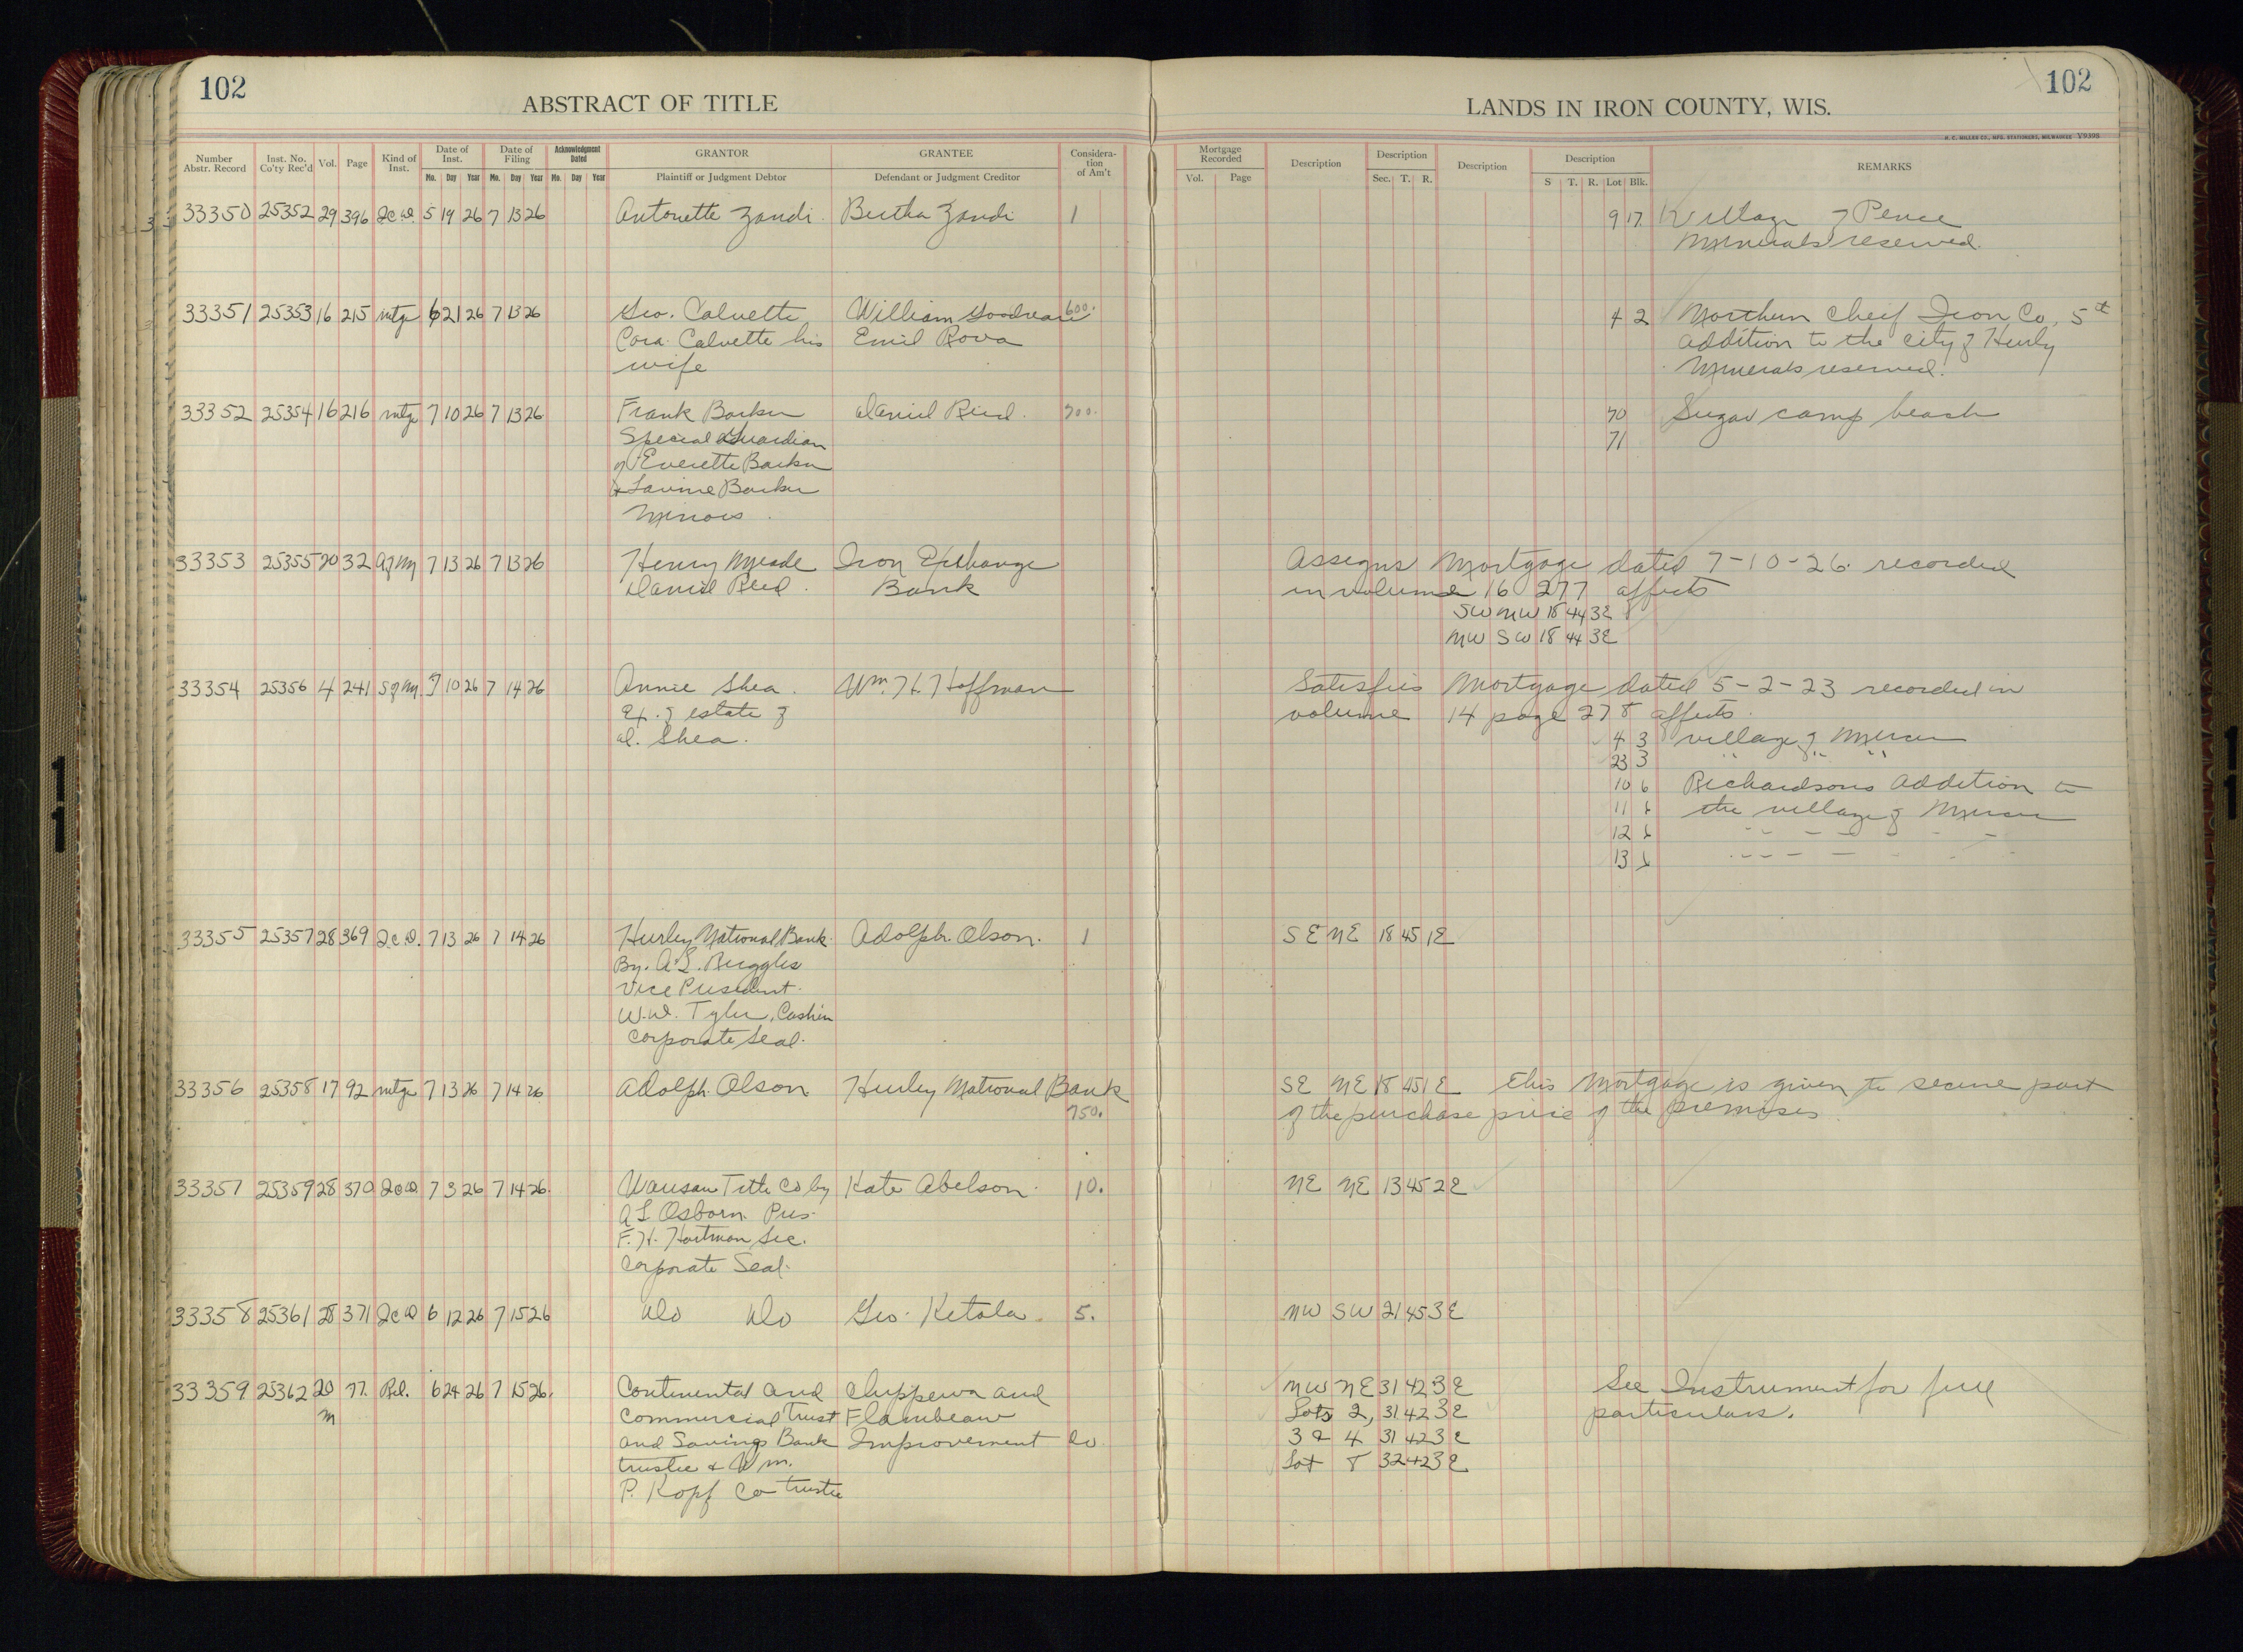 102
ABSTRACT OF TITLE
LANDS IN IRON COUNTY, WIS.
102
H. C. MILLER CO., MFG. STATIONERS, MILWAUKEE V9398
Number Abstr. Record
Inst. No. Co'ty Rec'd
Vol.
Page
Kind of Inst.
Date of Inst.
Mo. Day Year
Date of Filing
Mo. Day Year
Acknowledgment Dated
Mo. Day Year
GRANTOR
Plaintiff or Judgment Debtor
GRANTEE
Defendant or Judgment Creditor
Considera-
tion
of Am't
Mortgage Recorded
Vol. Page
Description
Description
Sec. T. R.
Description
Description
S T. R. Lot Blk.
REMARKS
33350 25352 29 396 Q.C.D. 5 19 26 7 13 26 Antonette Zandi Bertha Zandi 1 9 17 Village of Pence
Minerals reserved.
33351 25353 16 215 mtge 6 21 26 7 13 26 Geo. Calvette William 600. 4 2 Northern Cheif Iron Co, 5th
Cora Calvette his Emil Rova addition to the city of Hurly
wife Minerals reserved.
33352 25354 16 216 mtge 7 10 26 7 13 26 Frank Barker Daniel Reid. 700. 70 Sugar camp beach
Special Guardian 71
of Everette Barker
& Lavine Barker
Minors.
33353 25355 20 32 A of M 7 13 26 7 13 26 Henry Meade Iron Exchange Assigns Mortgage dated 7-10-26. recorded
Daniel Reid. Bank in volume 16 277 affects
SW NW 18 44 3E
NW SW 18 44 3E
33354 25356 4 241 S of M 7 10 26 7 14 26 Annie Shea. Wm. H. Hoffman Satisfies Mortgage dated 5-2-23 recorded in
Ex. of estate of volume 14 page 278 affects.
D. Shea. 4 3 village of Mercer
23 3 " " "
10 6 Richardsons Addition to
11 6 the village of Mercer
12 6 " - - - - -
13 6 - - - - - -
33355 25357 28 369 Q.C.D. 7 13 26 7 14 26 Hurley National Bank Adolph Olson. 1 SE NE 18 45 1E
By. A.L. Ruggles
Vice President.
W.D. Tyler, Cashier
Corporate Seal.
33356 25358 17 92 mtge 7 13 26 7 14 26 Adolph Olson Hurley National Bank SE NE 18 45 1E This Mortgage is given to secure part
750. of the purchase price of the premises
33357 25359 28 370 Q.C.D. 7 3 26 7 14 26. Wausau Title Co by Kate Abelson. 10. NE NE 13 45 2E
A L Osborn Pres.
F. H. Hartman Sec.
Corporate Seal.
33358 25361 28 371 Q.C.D. 6 12 26 7 15 26 Do Do Geo. Ketola. 5. NW SW 21 45 3E
33359 25362 20 77. Rel. 6 24 26 7 15 26. Continental and Chippewa and NW NE 31 42 3E See Instrument for full
M Commercial Trust Flambeau Lots 2, 31 42 3E particulars.
and Savings Bank Improvement Co 3 & 4 31 42 3E
trustee & Wm. Lot 8 32 42 3E
P. Kopf Co trustee